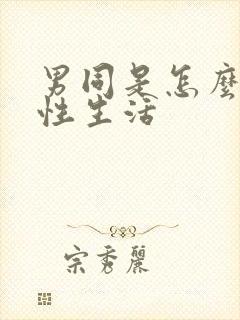 男同是怎麼
性生活
宗秀麗